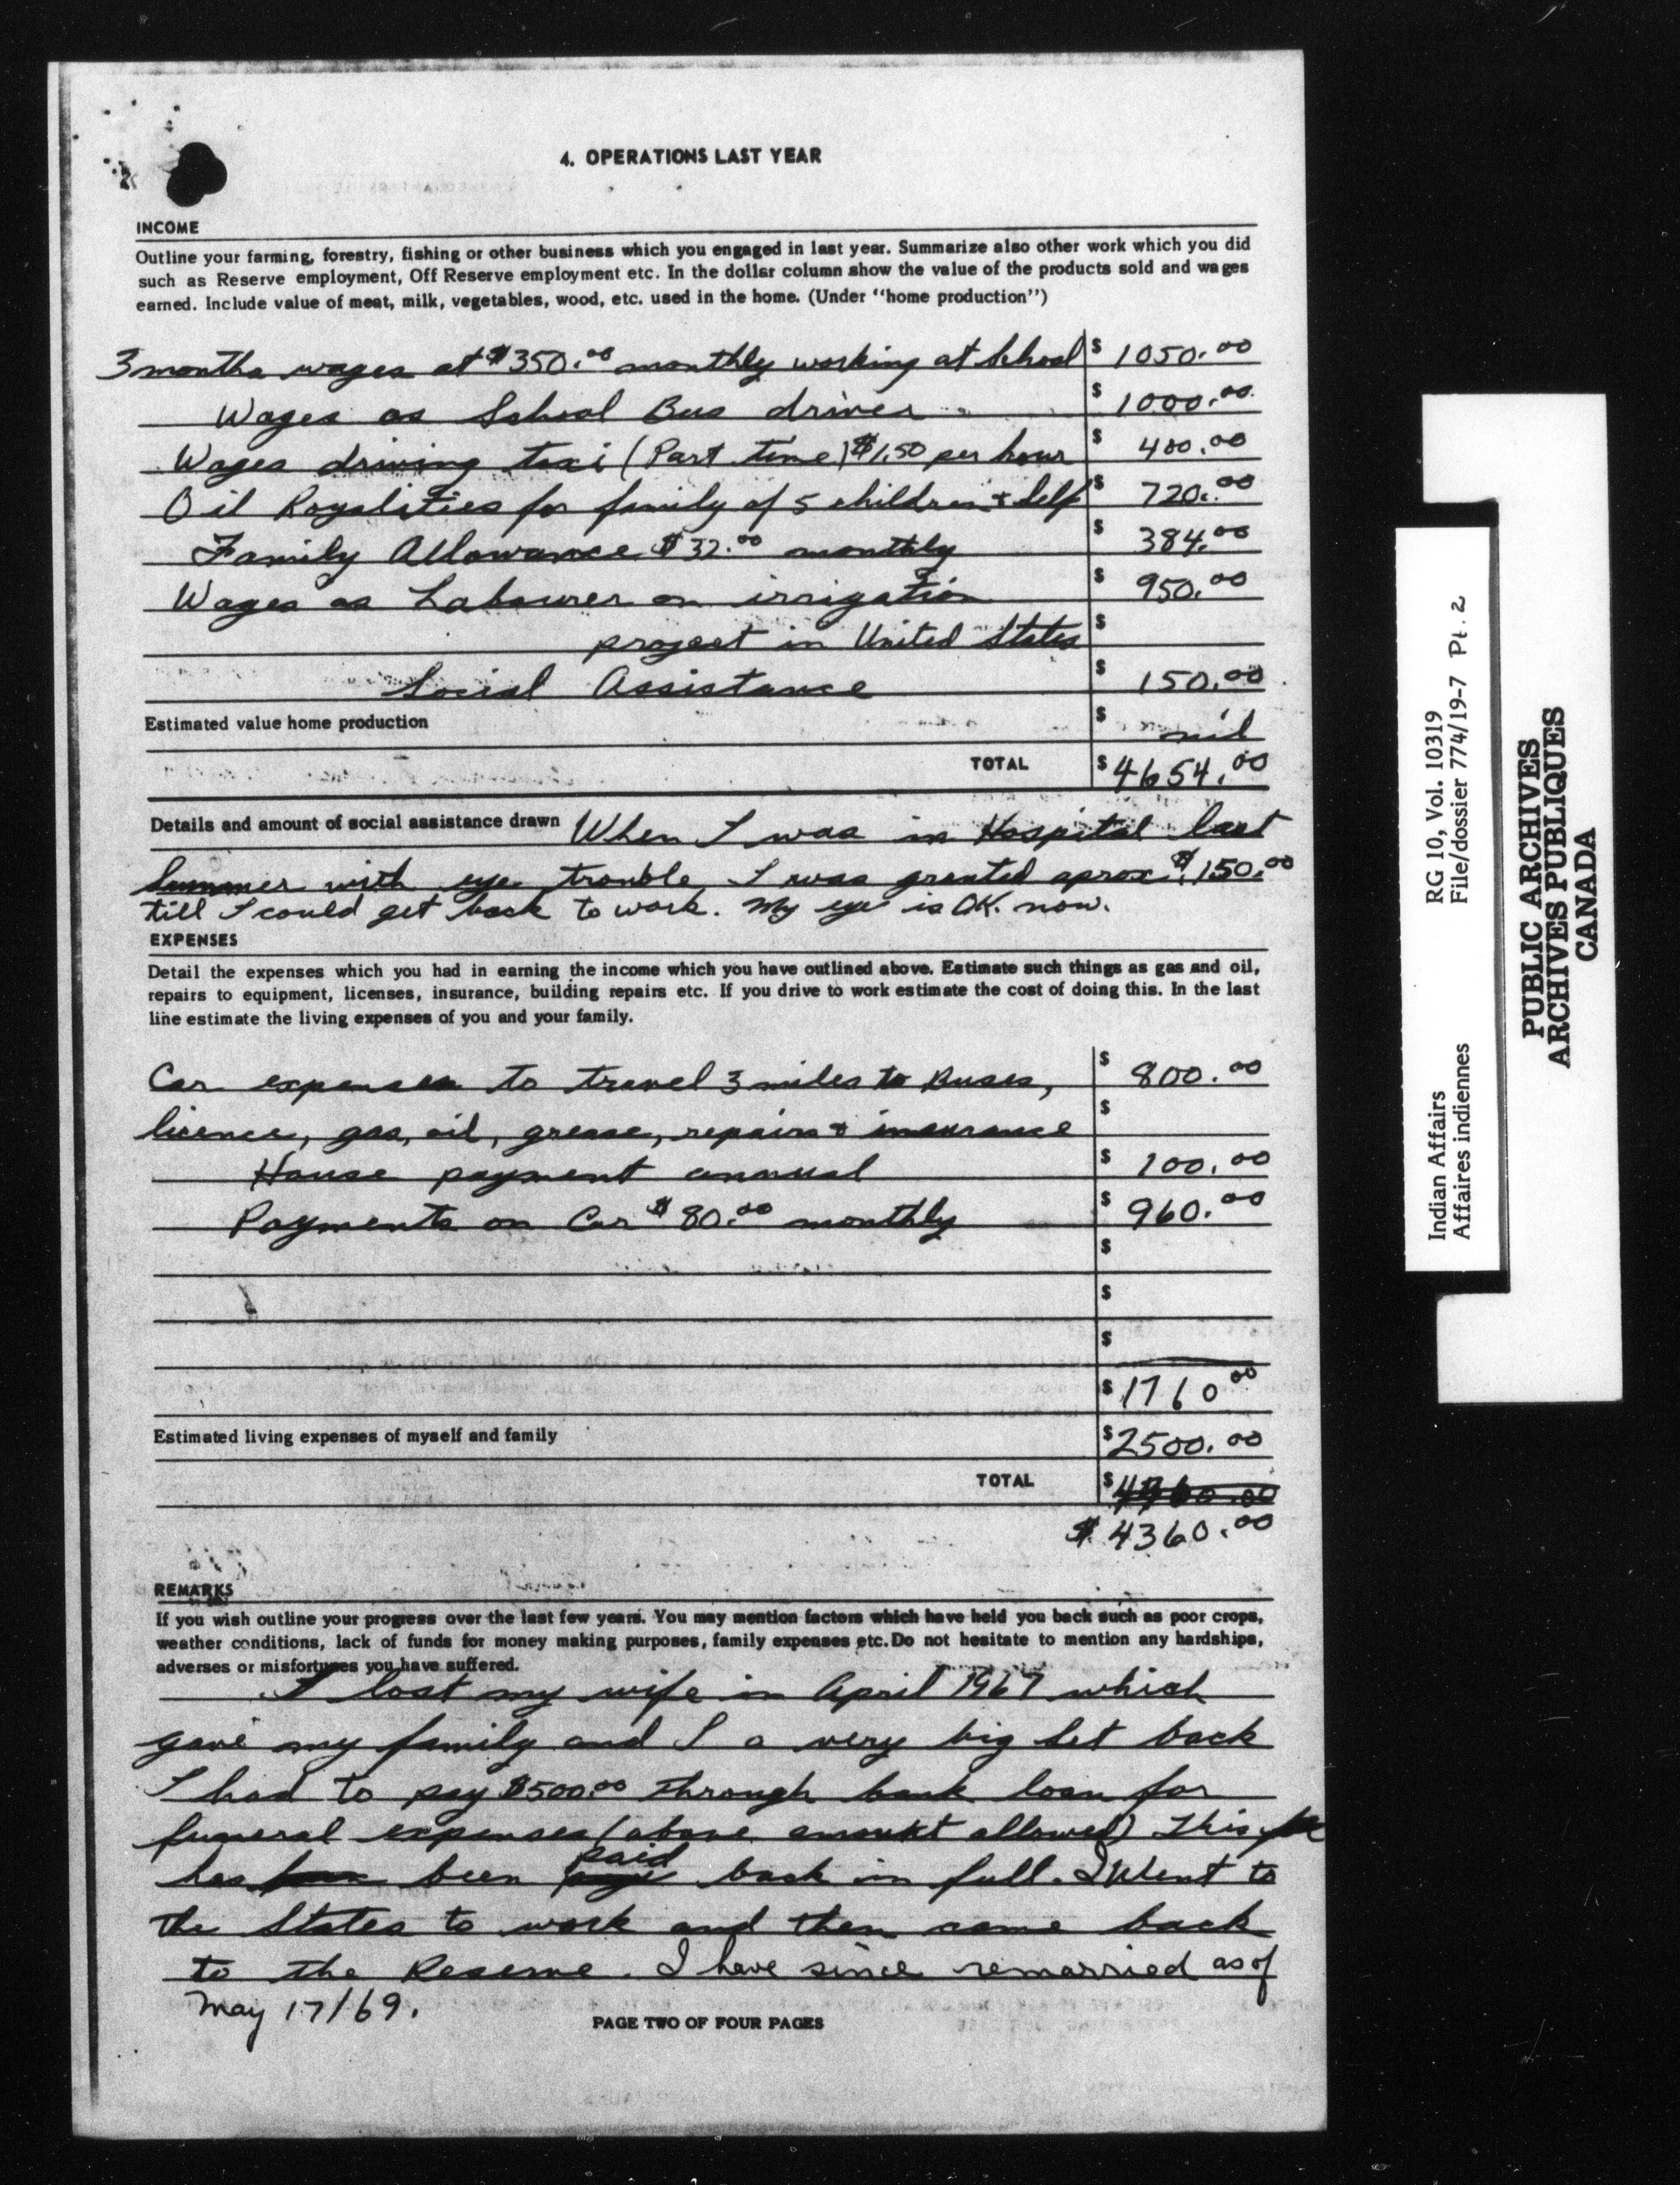 4. OPERATIONS LAST YEAR
INCOME
Outline your farming, forestry, fishing or other business which you engaged in last year. Summarize also other work which you did
such as Reserve employment, Off Reserve employment etc. In the dollar column show the value of the products sold and wages
earned. Include value of meat, milk, vegetables, wood, etc. used in the home. (Under "home production")
3 months wages at $350.00 monthly working at School $ 1050.00
Wages as School Bus driver $ 1000.00
Wages driving taxi (Part time) $1.50 per hour $ 400.00
Oil Royalities for family of 5 children & Self $ 720.00
Family Allowance $32.00 monthly $ 384.00
Wages as Labourer on irrigation $ 950.00
project in United States $
Social Assistance $ 150.00
Estimated value home production $ nil
TOTAL $ 4654.00
Details and amount of social assistance drawn When I was in Hospital last
Summer with eye trouble I was granted aprox. $150.00
till I could get back to work. My eye is OK. now.
EXPENSES
Detail the expenses which you had in earning the income which you have outlined above. Estimate such things as gas and oil,
repairs to equipment, licenses, insurance, building repairs etc. If you drive to work estimate the cost of doing this. In the last
line estimate the living expenses of you and your family.
Car expenses to travel 3 miles to Buses, $ 800.00
licence, gas, oil, grease, repairs & insurance $
House payment annual $ 100.00
Payments on Car $80.00 monthly $ 960.00
$
$
$
$ 1760 00
Estimated living expenses of myself and family $ 2500.00
TOTAL $
$ 4360.00
REMARKS
If you wish outline your progress over the last few years. You may mention factors which have held you back such as poor crops,
weather conditions, lack of funds for money making purposes, family expenses etc. Do not hesitate to mention any hardships,
adverses or misfortunes you have suffered.
I lost my wife in April 1967 which
gave my family and I a very big set back
I had to pay $500.00 through bank loan for
funeral expenses (above amount allowed) This
has been paid back in full. I Went to
the States to work and then came back
to the Reserve. I have since remarried as of
May 17/69.
PAGE TWO OF FOUR PAGES
Indian Affairs RG 10, Vol. 10319
Affaires indiennes File/dossier 774/19-7 Pt. 2
PUBLIC ARCHIVES
ARCHIVES PUBLIQUES
CANADA